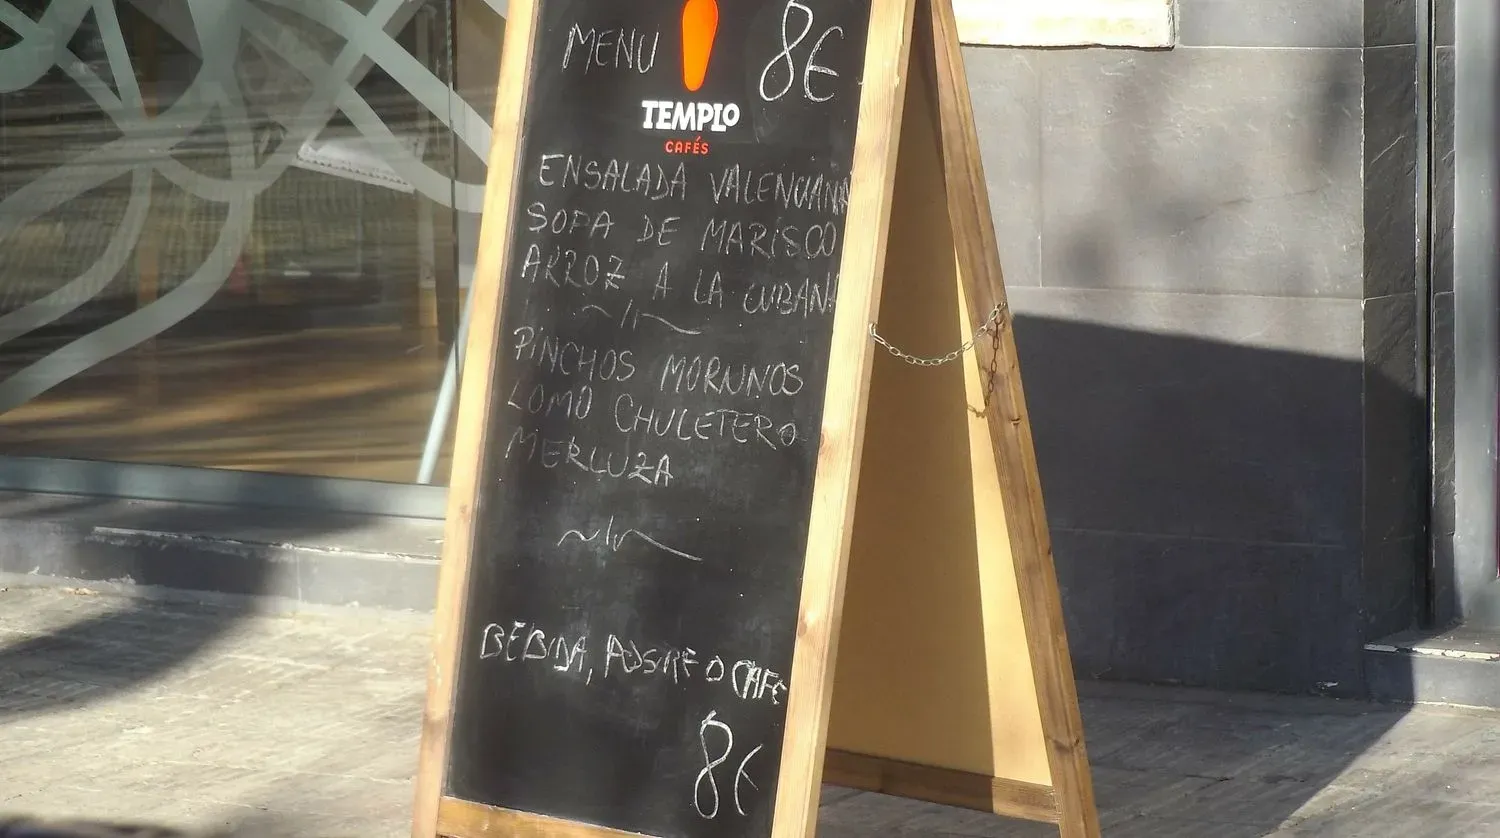 MENU 8€
TEMPLO
CAFÉS
ENSALADA VALENCIANA
SOPA DE MARISCO
ARROZ A LA CUBANA
PINCHOS MORUNOS
LOMO CHULETERO
MERLUZA
BEBIDA, POSTRE O CAFE
8€